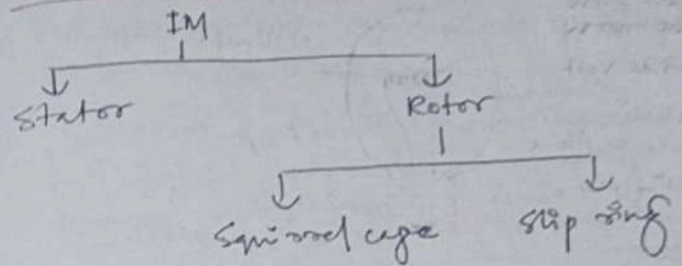 IM
Stator Rotor
Squirrel cage slip ring